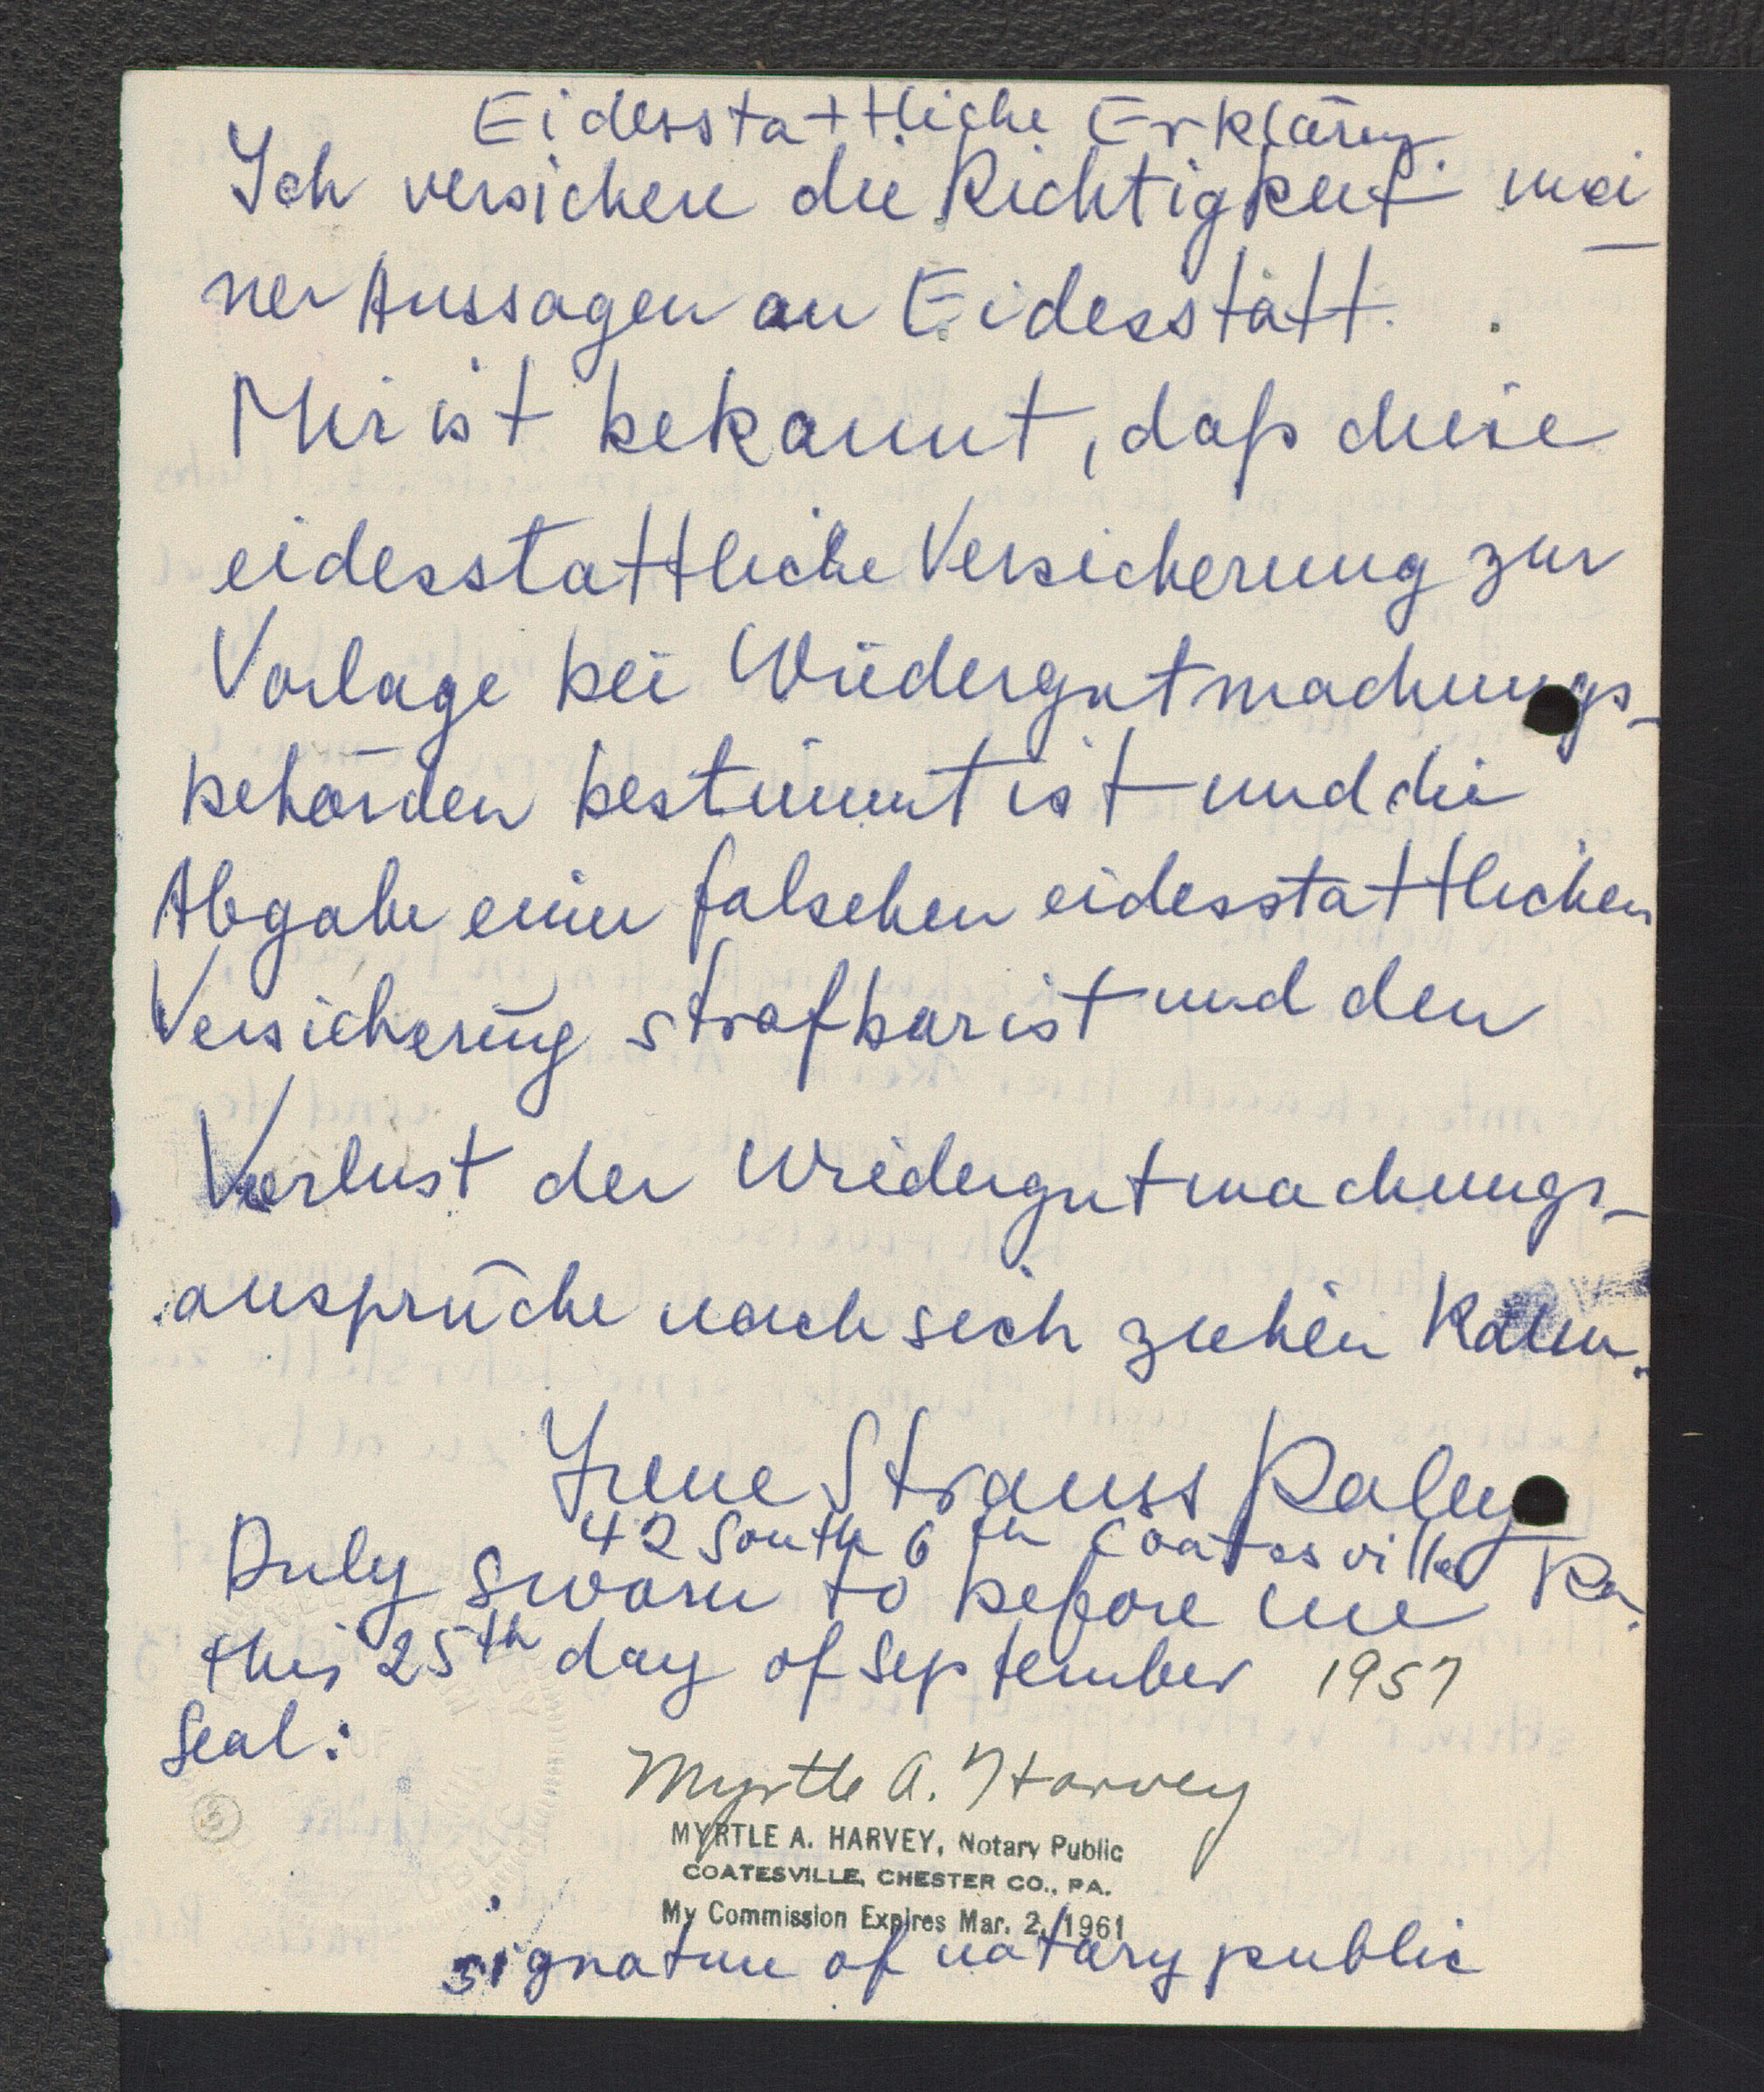 Eidesstattliche Erklärung.
Ich versichere die Richtigkeit mei
ner Aussagen an Eidesstatt.
Mir ist bekannt, daß diese
eidesstattliche Versicherung zur
Vorlage bei Wiedergutmachungs-
behörden bestimmt ist und die
Abgabe einer falschen eidesstattlichen
Versicherung strafbar ist und den
Verlust der Wiedergutmachungs-
ansprüche nach sich ziehen kann.
Irene Strauss Raley
42 South 6th Coatesville Pa.
Duly sworn to before me
this 25th day of September 1957
Seal:
Myrtle A. Harvey
MYRTLE A. HARVEY, Notary Public
COATESVILLE, CHESTER CO., PA.
My Commission Expires Mar. 2, 1961
signature of notary public